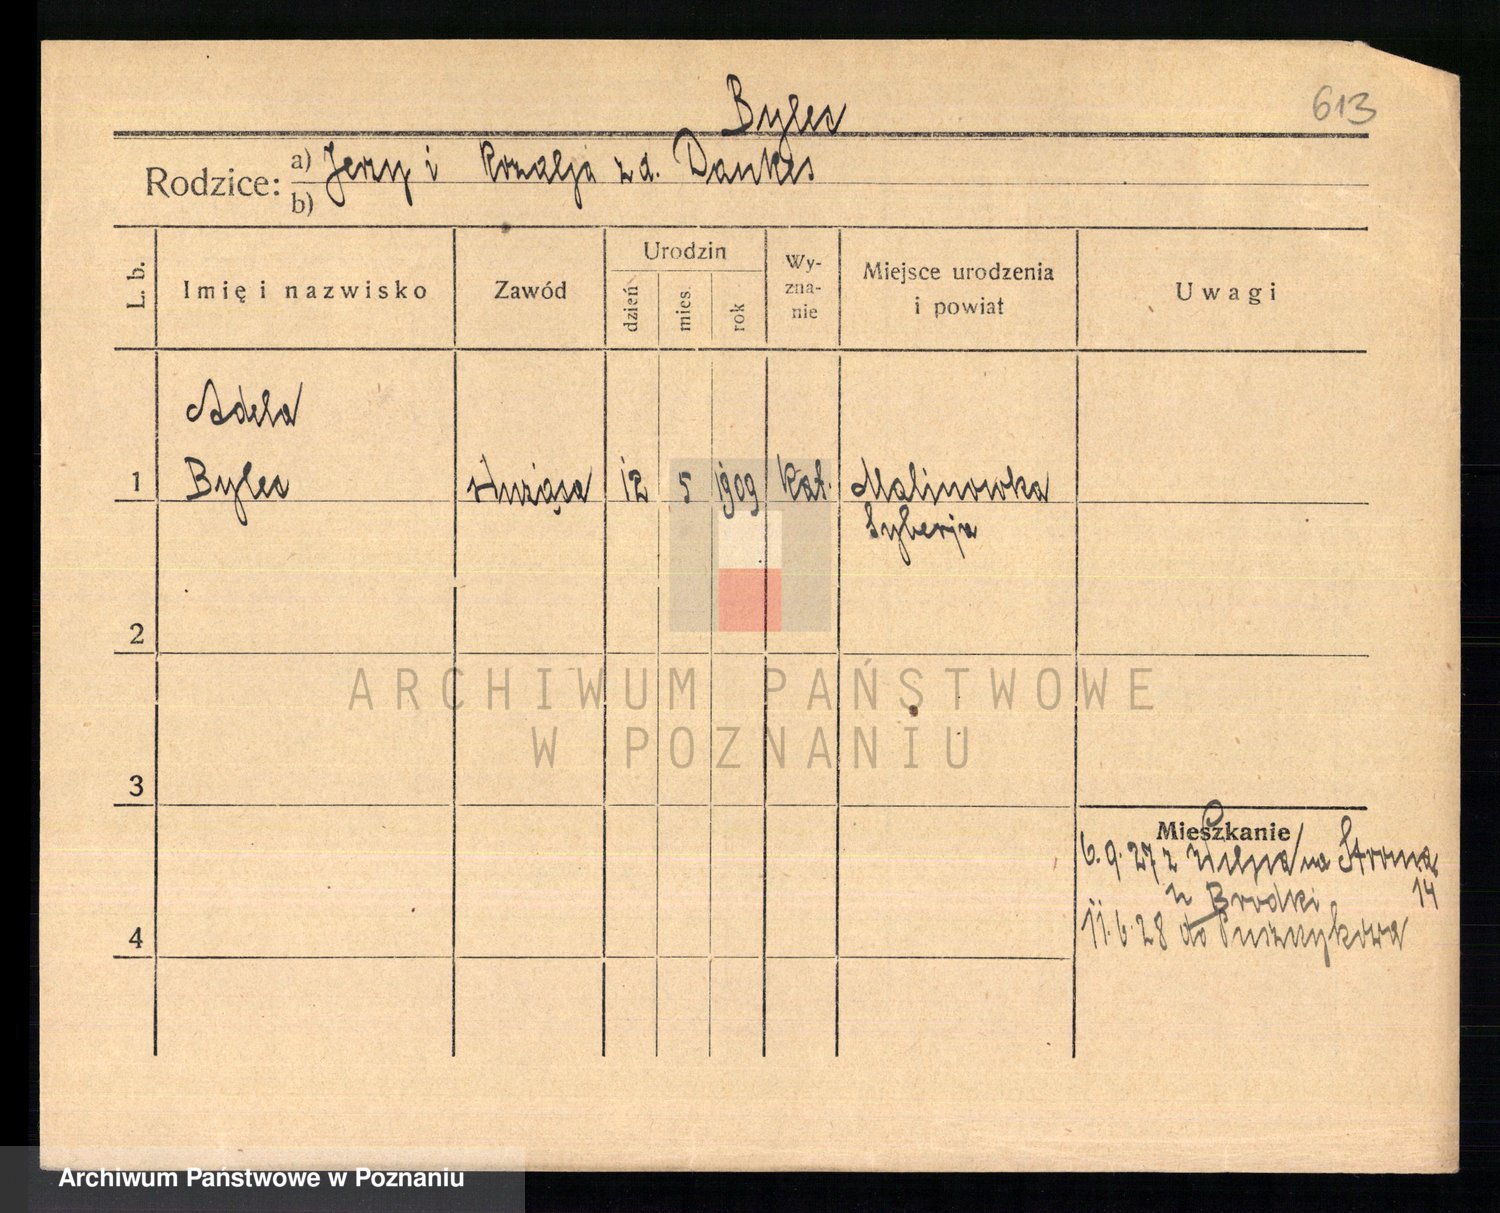 613
Bylec
Rodzice: a) Jerzy i Rozalja z d. Dankes
b)
L. b. Imię i nazwisko Zawód Urodzin dzień mies. rok Wy-zna-nie Miejsce urodzenia i powiat Uwagi
Adela
1 Bylec służąca 12 5 1909 kat. Malinowka
Syberja
2
ARCHIWUM PAŃSTWOWE
W POZNANIU
3
Mieszkanie
6.9.27 z Wilna na Stroma
14
u Brodki
4 11.6.28 do
Archiwum Państwowe w Poznaniu